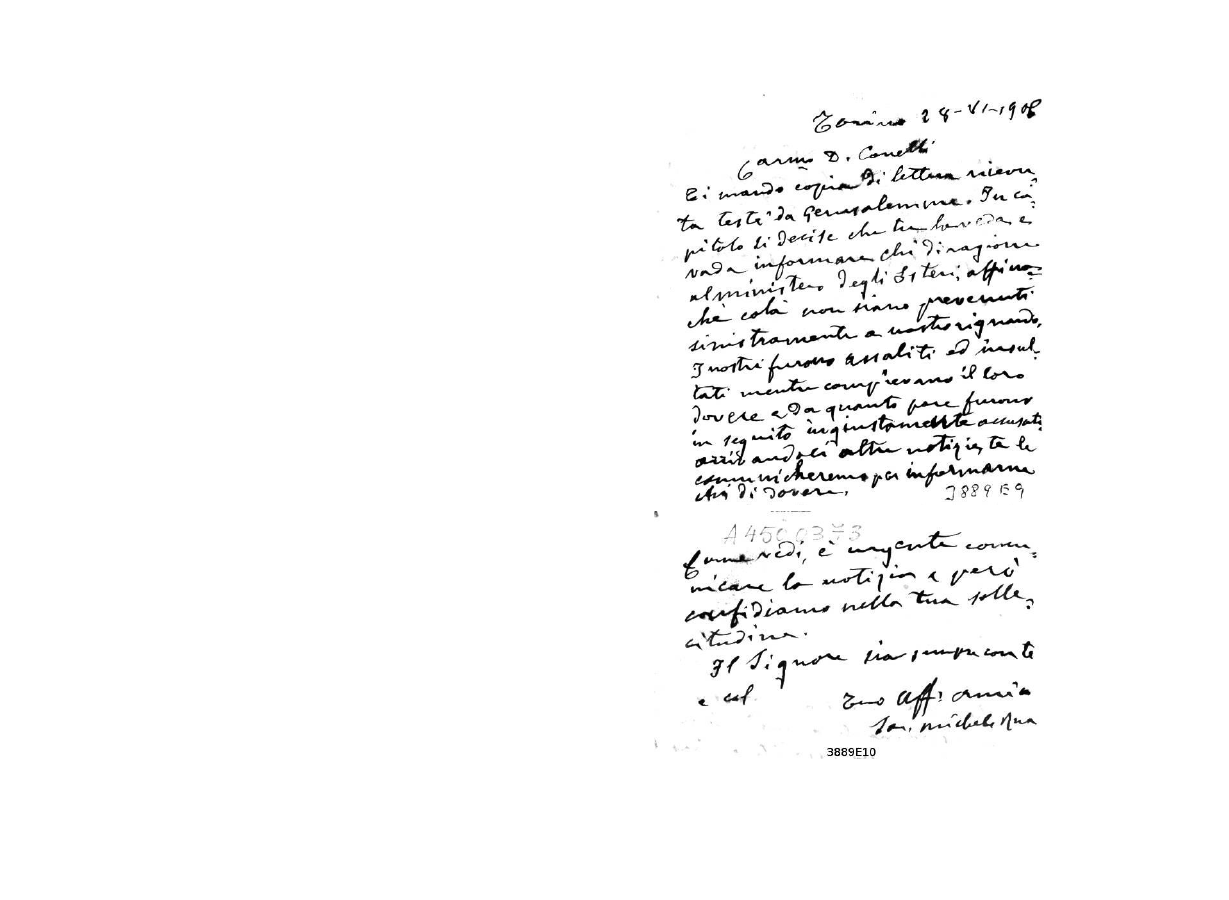 Torino 28-VI-1908
Carmo D. Conelli
Ti mando copia di lettera ricevu-
ta testè da Gerusalemme. In ca-
pitolo si decise che tu la veda e
vada informare chi di ragione
al ministero degli Esteri, affin-
chè colà non siano prevenuti
sinistramente a nostro riguardo.
I nostri furono assaliti ed insul-
tati mentre compievano il loro
dovere e da quanto pare furono
in seguito ingiustamente accusati
arrivandoci altre notizie, te le
comunicheremo per informarne
chi di dovere.
3889E9
A4500373
Come vedi, è urgente comu-
nicare la notizia e però
confidiamo nella tua solle-
citudine.
Il Signore sia sempre con te
e col
Tuo aff. amico
Sac. Michele Rua
3889E10